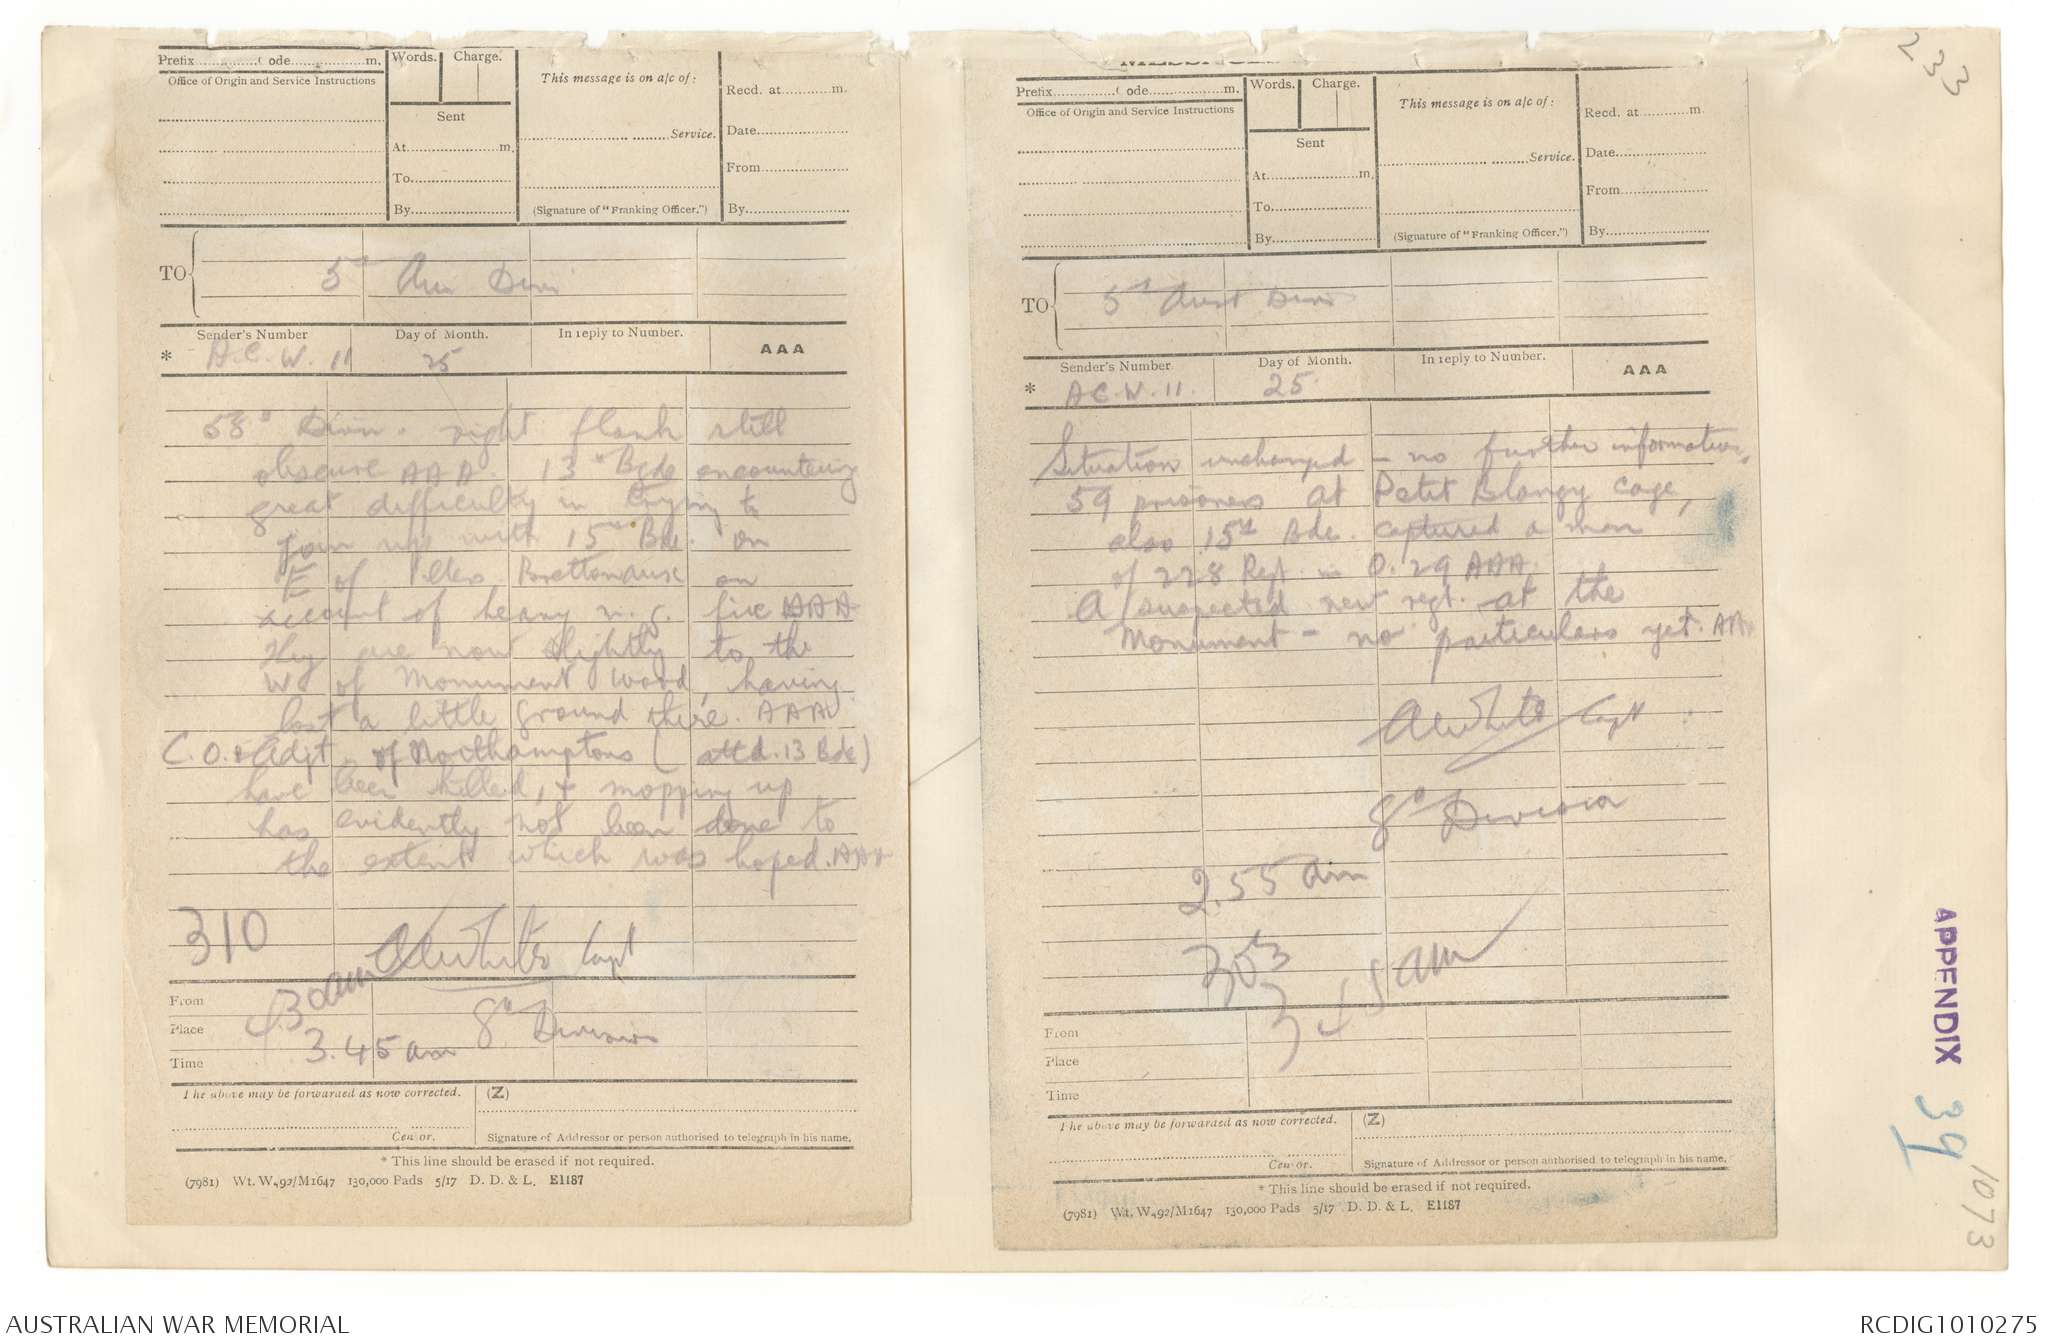 Prefix............Code..................m.
Words.
Charge.
Office of Origin and Service Instructions
Sent
At...................m.
To......................
By......................
This message is on a/c of:
....................... .......Service.
(Signature of "Franking Officer.")
Recd. at............m.
Date......................
From....................
By......................
TO
5th Aus Divn
Sender's Number
Day of Month.
In reply to Number.
AAA
* A.C.W. 11
25
58th Divn. right flank still
obscure AAA. 13th Bde encountering
great difficulty in trying to
join up with 15th Bde. on
E of Villers Brettoneaux on
account of heavy m.g. fire AAA
They are now slightly to the
W of Monument Wood, having
lost a little ground there. AAA
C.O. & Adjt of Northamptons (attd. 13 Bde)
have been killed, & mopping up
has evidently not been done to
the extent which was hoped. AAA
310
AWhite Capt
From
Place
Time
4.30am
3.45 am
8th Division
The above may be forwarded as now corrected.
(Z)
Censor.
Signature of Addressor or person authorised to telegraph in his name.
* This line should be erased if not required.
(7981) Wt. W.492/M1647 130,000 Pads 5/17 D. D. & L. E1187
Prefix............Code..................m.
Words.
Charge.
Office of Origin and Service Instructions
Sent
At...................m.
To......................
By......................
This message is on a/c of:
....................... .......Service.
(Signature of "Franking Officer.")
Recd. at............m.
Date......................
From....................
By......................
TO
5th Aust Divn
Sender's Number
Day of Month.
In reply to Number.
AAA
* A.C.W. 11.
25.
Situation unchanged - no further information,
59 prisoners at Petit Blangy cage,
also 15th Bde. captured a man
of 228 Regt. in O.29 AAA.
A suspected new regt. at the
Monument - no particulars yet. AAA
AWhite Capt
8th Division
2.55 am
303
3 45 am
From
Place
Time
The above may be forwarded as now corrected.
(Z)
Censor.
Signature of Addressor or person authorised to telegraph in his name.
* This line should be erased if not required.
(7981) Wt. W.492/M1647 130,000 Pads 5/17 D. D. & L. E1187
233
APPENDIX 39
1073
AUSTRALIAN WAR MEMORIAL
RCDIG1010275